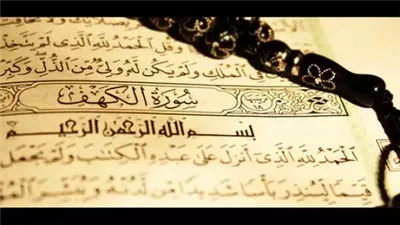 وقل الحمد لله الذى لم يتخذ
فى الملك ولم يكن له ولى من الذل وكبره
سورة الكهف
بسم الله الرحمن الرحيم
الحمد لله الذى أنزل على عبده الكتاب ولم يجعل
قيما لينذر بأسا شديدا من لدنه ويبشر